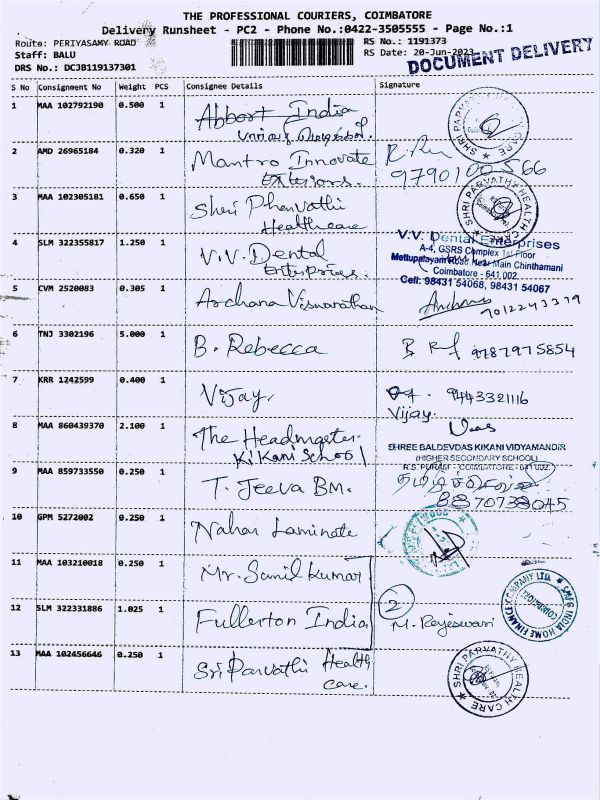 THE PROFESSIONAL COURIERS, COIMBATORE
Delivery Runsheet - PC2 - Phone No.:0422-3505555 - Page No.:1
Route: PERIYASAMY ROAD
RS No.: 1191373
Staff: BALU
RS Date: 20-Jun-2023
DOCUMENT DELIVERY
DRS No.: DCJB119137301
S No Consignment No Weight PCS Consignee Details Signature
1 MAA 102792190 0.500 1 Abbort India
SHRI PARVATHY HEALTH CARE
2 AMD 26965184 0.320 1 Mantro Innovate
Exteriors.
9790100566
3 MAA 102305181 0.650 1 Shri Pharvathi
Healthcare
SHRI PARVATHY HEALTH CARE
4 SLM 322355817 1.250 1 V.V. Dental
Enterprises.
V.V. Dental Enterprises
A-4, GSRS Complex 1st Floor
Mettupalayam Road Near Main Chinthamani
Coimbatore - 641 002.
Cell: 98431 54068, 98431 54067
5 CVM 2520083 0.305 1 Archana Viswanathan
7012243379
6 TNJ 3302196 5.000 1 B. Rebecca
9787975854
7 KRR 1242599 0.400 1 Vijay.
9443321116
Vijay.
8 MAA 860439370 2.100 1 The Headmaster.
Kikani School
SHREE BALDEVDAS KIKANI VIDYAMANDIR
(HIGHER SECONDARY SCHOOL)
R.S. PURAM - COIMBATORE - 641 002.
9 MAA 859733550 0.250 1 T. Jeeva BM.
8870738045
10 GPM 5272002 0.250 1 Nahar Laminate
11 MAA 103210018 0.250 1 Mr. Sunil Kumar
12 SLM 322331886 1.025 1 Fullerton India
2
M. Rajeswari
SMFG INDIA HOME FINANCE COMPANY LTD.
COIMBATORE
13 MAA 102456646 0.250 1 Sri Parvathi Health
care.
SHRI PARVATHY HEALTH CARE